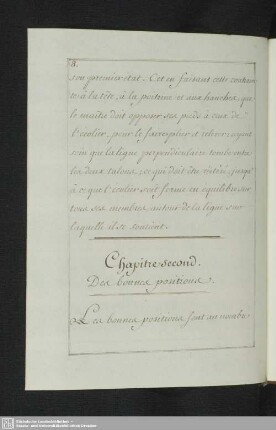 8.
son premier état. C'est en faisant cette contrain
te à la tête, à la poitrine et aux hanches, que
le maître doit opposer ses pieds à ceux de
l'Ecolier, pour le faire plier et relever, ayant
soin que la ligne perpendiculaire tombe entre
les deux talons, ce qui doit être réitéré jusqu'
à ce que l'Ecolier soit ferme en équilibre sur
tous ses membres autour de la ligne sur
laquelle il se soutient.
Chapitre second.
Des bonnes positions.
Les bonnes positions sont au nombre